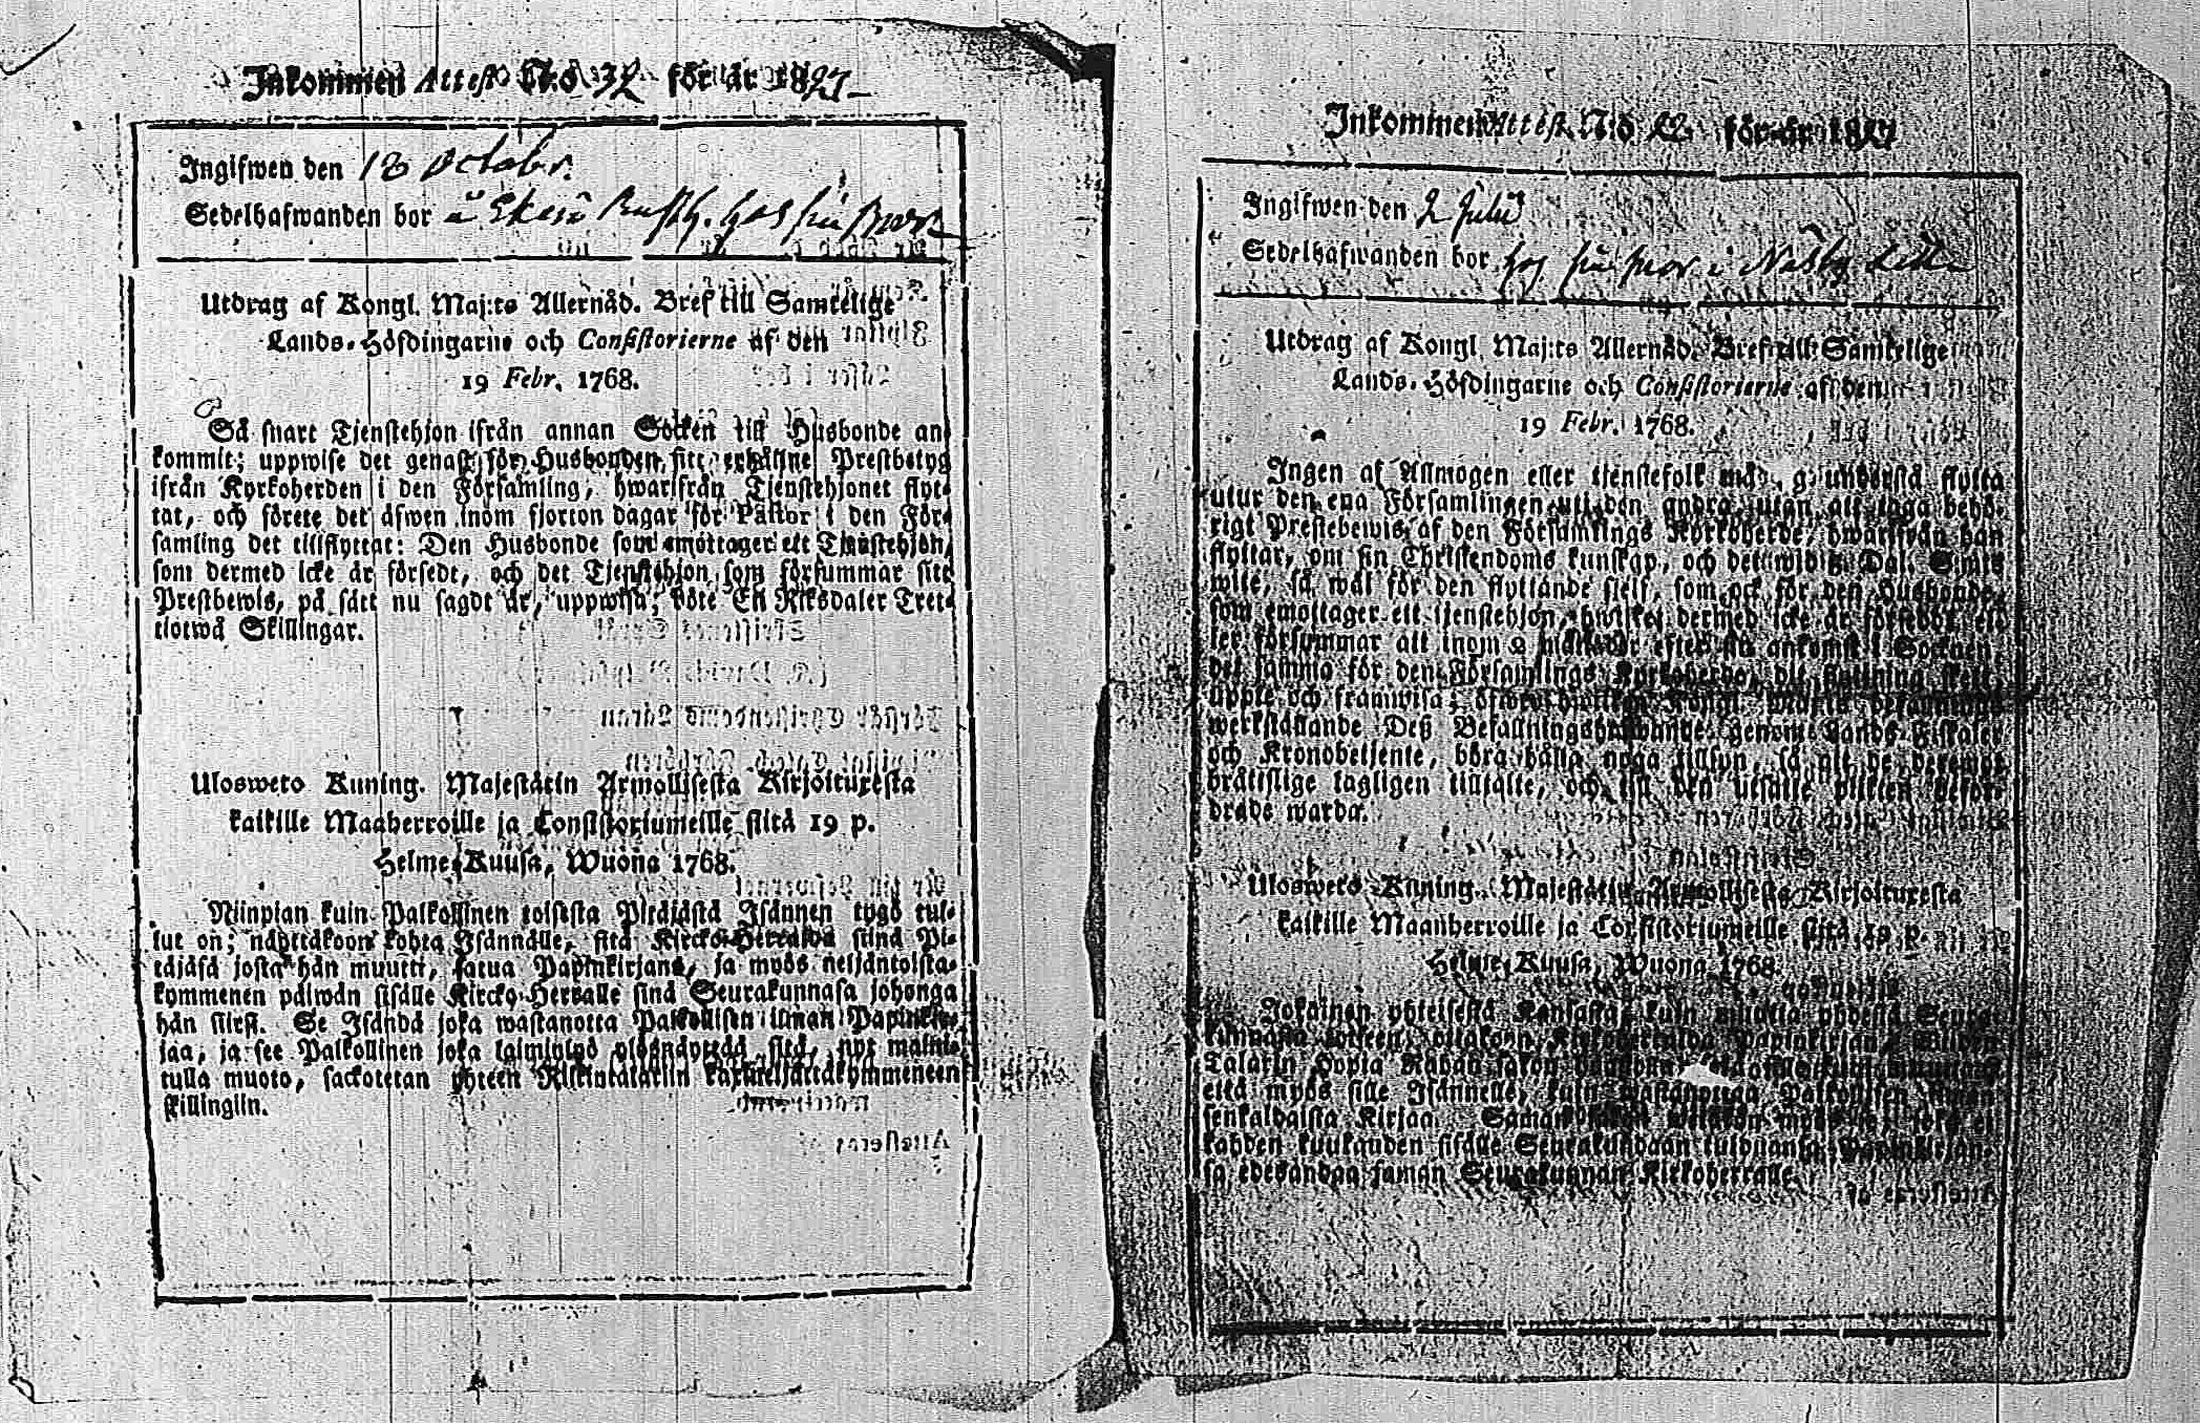 Inkommen Attest N:o 32 för år 1827
Ingifwen den 18 Octobr.
Sedelhafwanden bor å
Utdrag af Kongl. Maj:ts Allernåd. Bref till Samtelige
Lands-Höfdingarne och Consistorierne af den
19 Febr. 1768.
Så snart Tjenstehjon ifrån annan Socken till Husbonde an-
kommit; uppwise det genast för Husbonden sitt erhållne Prestbetyg
ifrån Kyrkoherden i den Församling, hwarifrån Tjenstehjonet flyt-
tat, och förete det äfwen inom fjorton dagar för Pastor i den För-
samling det tillflyttat: Den Husbonde som emottager ett Tjenstehjon,
som dermed icke är försedt, och det Tjenstehjon som försummar sitt
Prestbewis, på sätt nu sagdt är, uppwisa; böte En Riksdaler Tret-
tiotwå Skillingar.
Uloswetо Kuning. Majestätin Armollisesta Kirjoituxesta
kaikille Maaherroille ja Consistoriumeille siitä 19 p.
Helme-Kuusa, Wuona 1768.
Niinpian kuin Palkollinen toisesta Pitäjästä Isännen tygö tul-
lut on; näyttäkoon kohta Isännälle, sitä Kircko-Herralda siinä Pi-
täjäsä josta hän muutti, saatua Papinkirjans, ja myös neljäntoista-
kymmenen päiwän sisälle Kircko-Herralle siinä Seurakunnasa johonga
hän siirsi. Se Isändä joka wastanotta Palkollisen ilman Papinkir-
jaa, ja se Palkollinen joka laiminlyö ylösnäyttää sitä, nyt maini-
tulla muoto, sackotetan yhteen Riikintalariin kaxineljättäkymmeneen
skillingiin.
Inkommen Attest N:o 22 för år 1827
Ingifwen den 2 Julii
Sedelhafwanden bor hos sin mor i Näsby
Utdrag af Kongl. Maj:ts Allernåd. Bref till Samtelige
Lands-Höfdingarne och Consistorierne af den
19 Febr. 1768.
Ingen af Allmogen eller tjenstefolk må flytta
utur den ena Församlingen uti den andra, utan att taga behö-
rigt Prestebewis af den Församlings Kyrkoherde, hwarifrån han
flyttar, om sin Christendoms kunskap, och det widit Dal. S:mts
wite, så wäl för den flyttande sjelf, som ock för den Husbonde,
som emottager ett tjenstehjon, hwilket dermed icke är försedt, el-
ler försummar att inom 2 månader efter sin ankomst i Socknen,
det samma för den Församlings Kyrkoherde, dit flyttning skett,
uppte och framwisa;
werkställande Deß Befallningshafwande genom Lands-Fiskaler
och Kronobetjente, böra hålla noga tillsyn, så att de deremot
bråtslige lagligen tilltalte, och till den utsatte plikten befor-
drade warda.
Ulosweto Kuning. Majestätin Armollisesta Kirjoituxesta
kaikille Maanherroille ja Consistoriumeille siitä 19 p.
Helme-Kuusa, Wuona 1768.
Jokainen yhteisestä Kansasta, kuin muutta yhdestä Seura-
kunnasta toiseen, ottakohn Kirkoherralda Papinkirjan,
Talarin
että myös sille Isännelle, kuin wastanottaa Palkollisen ilman
senkaldaista Kirjaa. joka ei
kahden kuukauden sisälle Seurakundaan tulduansa, Papinkirjan-
sa edesandaa saman Seurakunnan Kirkoherralle.